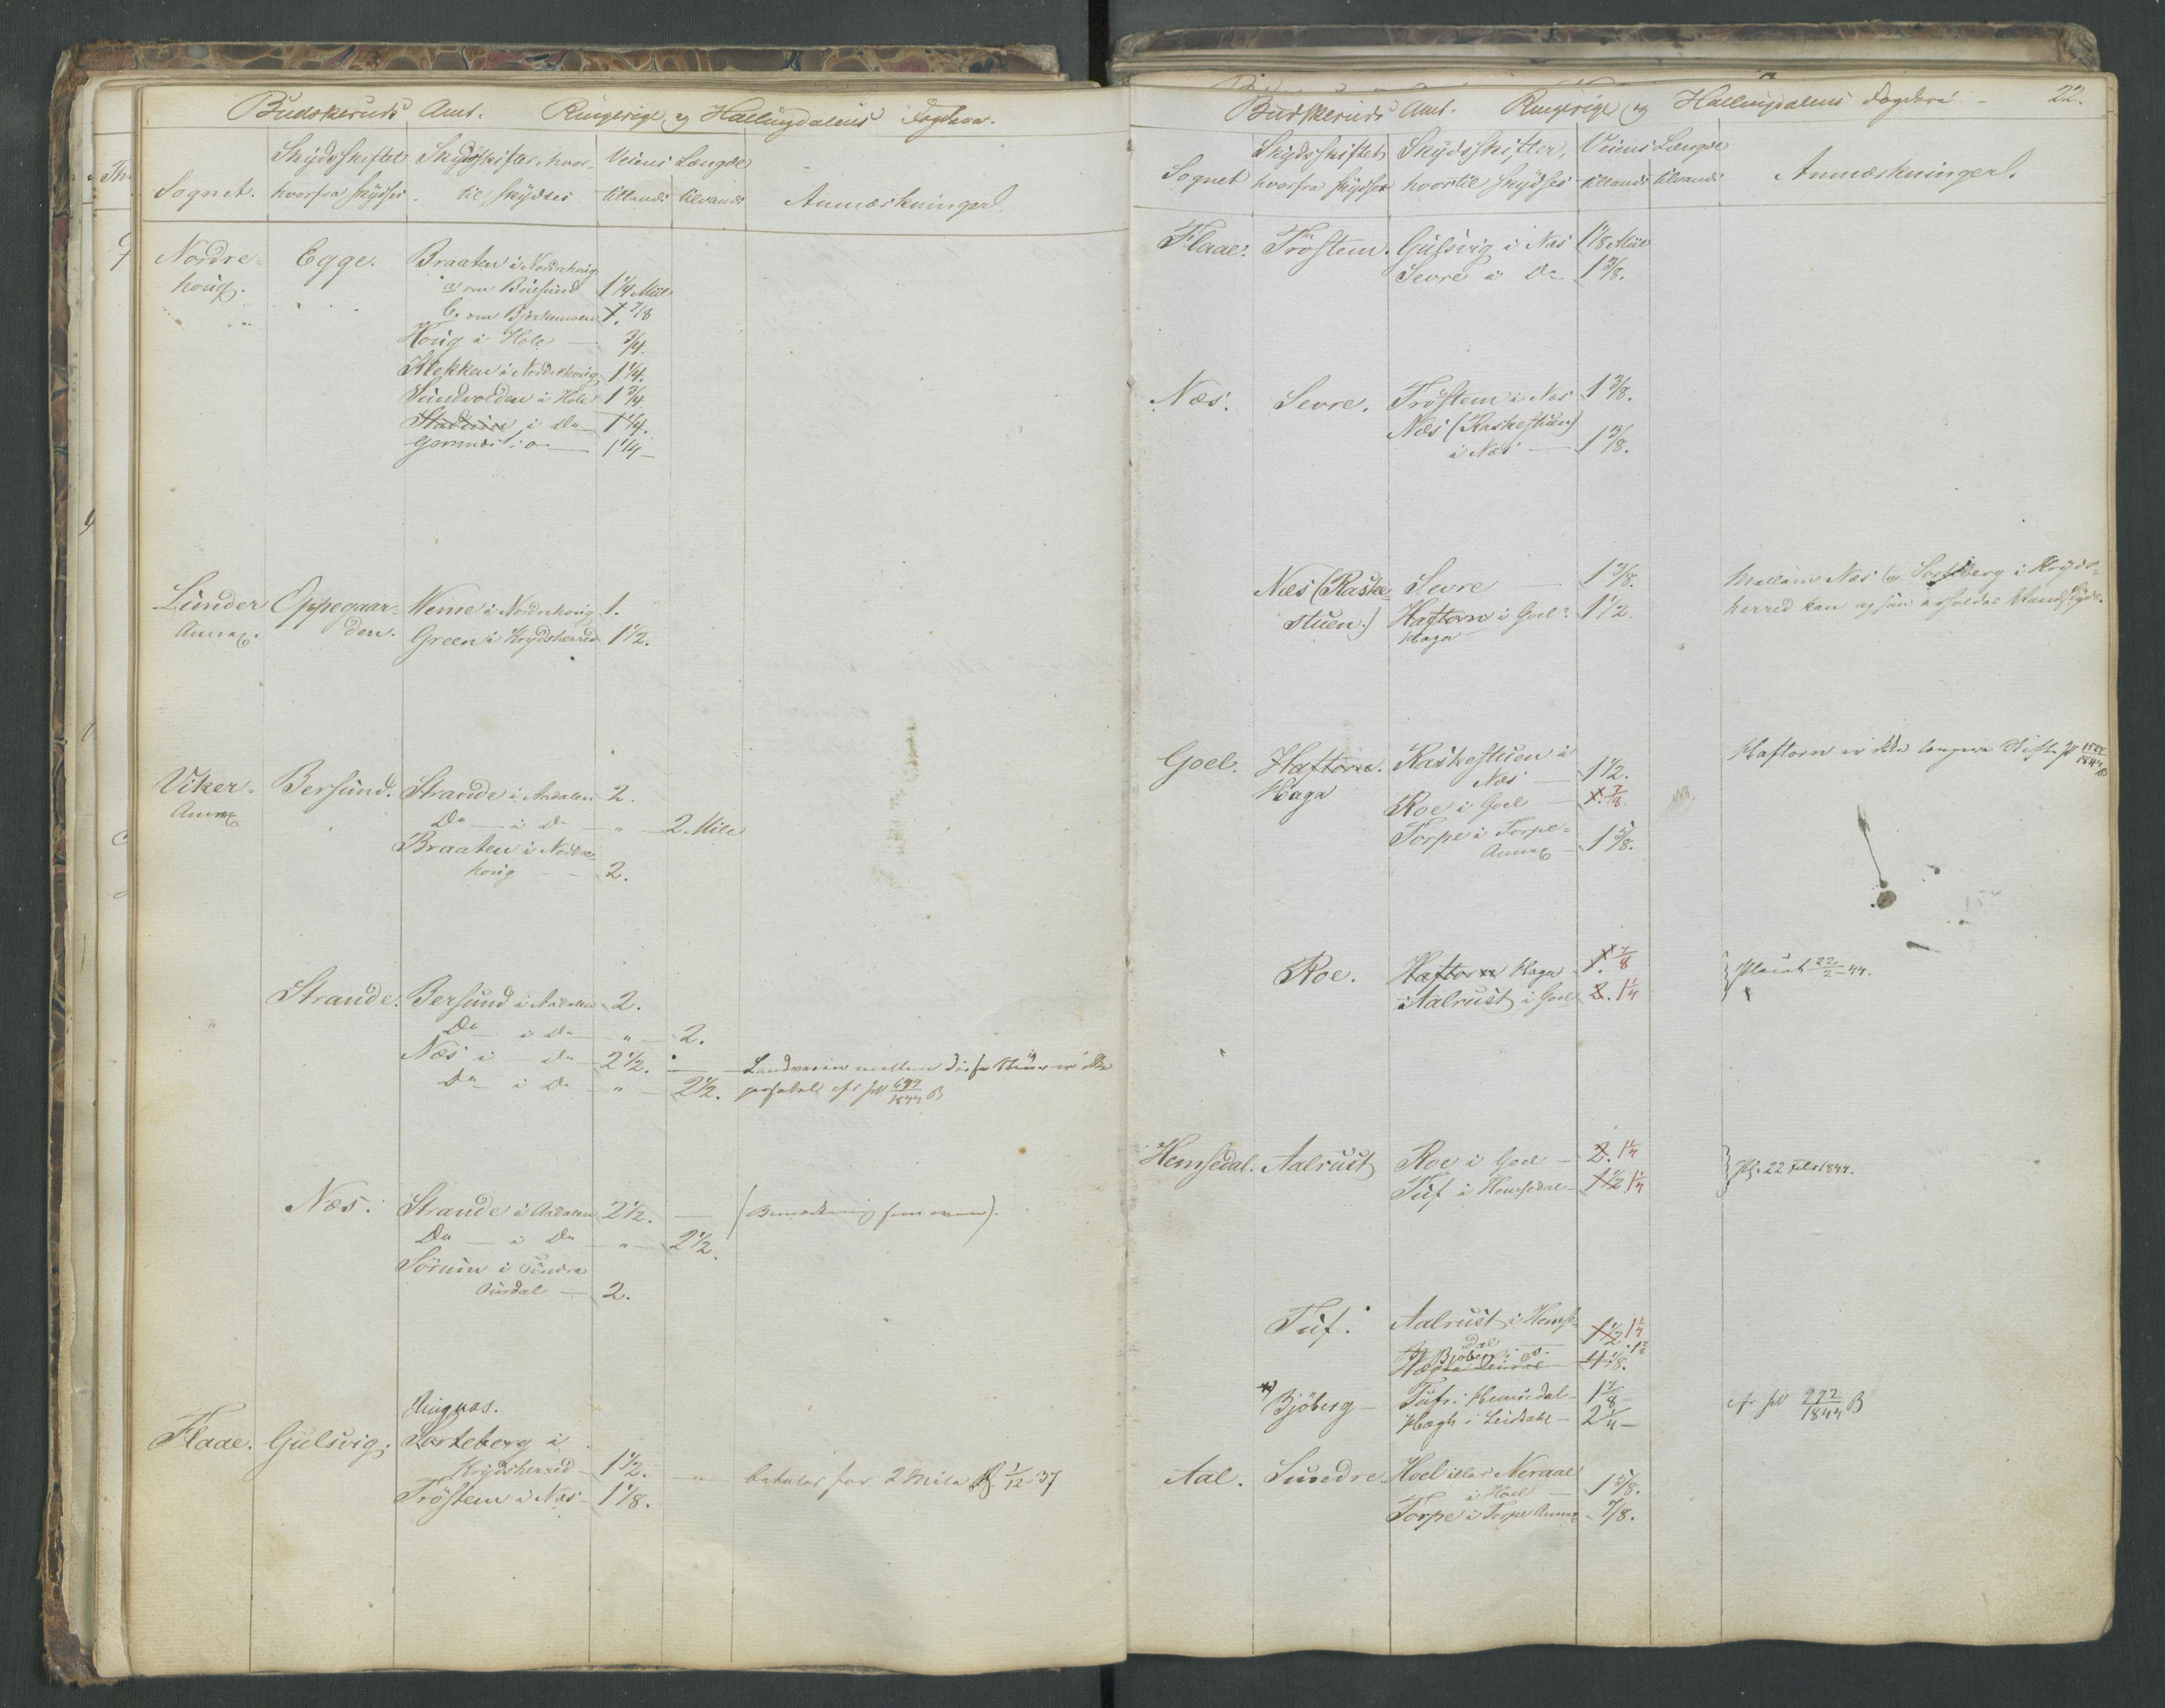 Budskeruds Amt. Ringerige og Hallingdalens Fogderie.
Sognet. Skydsskiftet hvorfra skydses. Skydsskifter, hvortil skydses Veiens Længde tillands tilvands Anmærkninger.
Nordrehoug. Egge. Braaten i Nordrehoug
a om Buesund 1 1/4 Miil
b. om Bjerkemoen 1. 7/8
Houg i Hole — 3/4.
Klekken i Nordrehoug 1 1/4.
Sundvolden i Hole 1 3/4
Stadum i Do 1 1/4.
Gomnæs i o — 1 1/4 —
Lunder Annex. Oppegaarden. Weme i Nordrehoug 1.
Green i Krydsherred 1 1/2.
Viker Annex Bersund. Strande i Aadalen 2.
Do — i Do — " — 2 Mile
Braaten i Nordrehoug — 2.
Strande. Bersund i Aadalen 2.
Do i Do " 2.
Næs i do 2 1/2. — Landveien mellem disse Stœr er ikke
Do i Do " 2 1/2. passabel cfr 697/1844 B
Næs. Strande i Aadalen 2 1/2. — (Bemærkning som oven).
Do — i Do — " — 2 1/2.
Sörum i Söndre
Aurdal — 2.
Ringnæs.
Flaae. Gulsvig. Sorteberg i
Krydsherred — 1 1/2. — " — betales for 2 Mile 1/12 37
Tröstem i Næs — 1 1/8.
Budskeruds Amt. Ringerige og Hallingdalens Fogderi — 22.
Sognet Skydsskiftet hvorfra skydses Skydsskifter, hvortil skydses Veiens Længde tillands tilvands Anmærkninger.
Flaae. Tröstem. Gulsvig i Næs 1 1/8 Miil
Sevre i Do 1 3/8.
Næs. Sevre. Tröstem i Næs 1 3/8.
Næs (Raskestuen)
i Næs — 1 3/8.
Næs (Raskestuen.) Sevre — 1 3/8. Mellem Næs og Sorteberg i Kryds-
Haftorn i Goel. 1 1/2. herred kan ogsaa erholdes Vandskyds.
Haga
Goel. Haftorn. Raskestuen i Haftorn er ikke længere Skifte
Haga Næs — 1 1/2.
Roe i Goel — 1. 7/8.
Torpe i Torpe-
Annex — 1 5/8.
Roe. Haftorn Haga 1. 7/8 Placat 22/2 44.
Aalrust i Goel 2. 1 1/4
Hemsedal. Aalrust Roe i Goel — 2. 1 1/4 Pl. 22 Febr 1844.
Tuf i Hemsedal — 1 1/2 1 1/4
Tuf. Aalrust i Hemse-
dal 1 1/2. 1 1/4
Bjöberg i do. 1 7/8
Hægh i Leirdal 4 1/8.
*) Bjöberg — Tuf i Hemsedal — 1 7/8
Hægh i Leirdahl — 2 1/4 — cfr 272/1844 B
Aal. Sundre. Hoel eller Neraal
i Hoel — 1 5/8.
Torpe i Torpe Annex — 7/8.